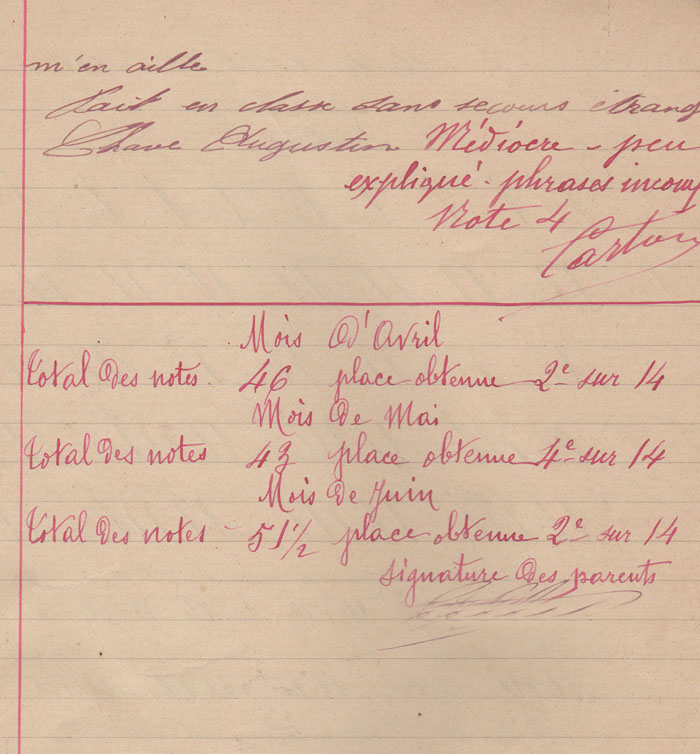 m'en aille
Fait en classe sans secours étrang
Chave Augustin Médiocre - peu
expliqué - phrases incom
Note 4
Mois d'Avril
Total des notes. 46 place obtenue 2e sur 14
Mois de Mai
Total des notes 43 place obtenue 4e sur 14
Mois de Juin
Total des notes - 51 1/2 place obtenue 2e sur 14
signature des parents